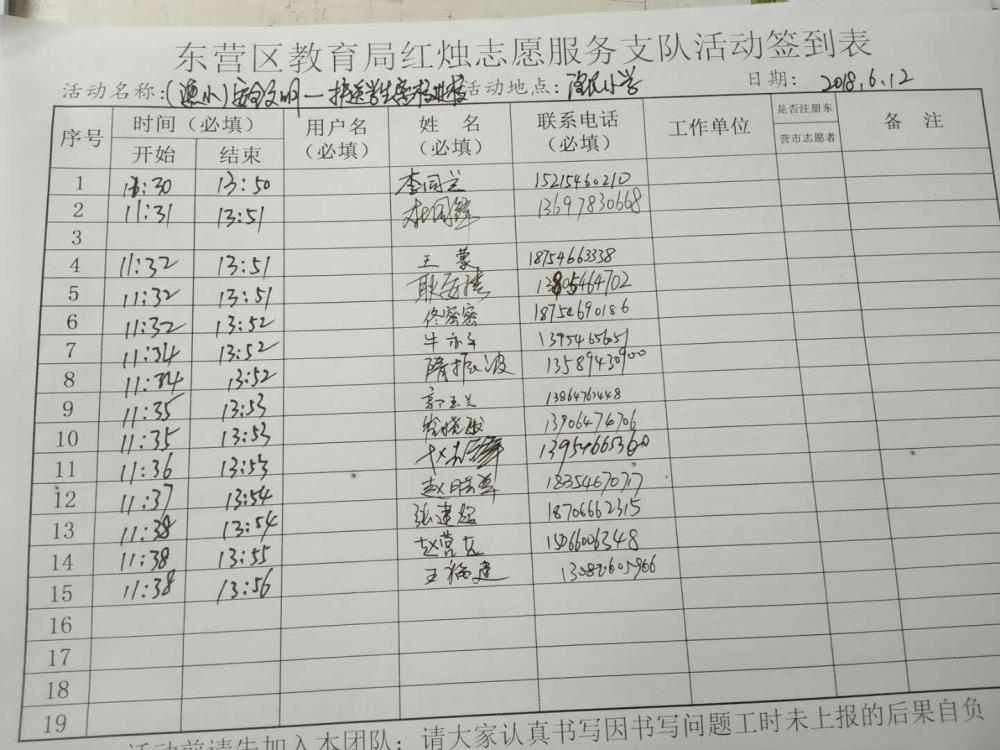 东营区教育局红烛志愿服务支队活动签到表
活动名称:(通小)安全文明一护送学生 活动地点: 小学 日期: 2018.6.12
序号 时间(必填) 用户名(必填) 姓名(必填) 联系电话(必填) 工作单位 是否注册东营市志愿者 备注
开始 结束
1 13:50 李同兰 15215460210
2 11:31 13:51 13697830668
3
4 11:32 13:51 王蒙 18754663338
5 11:32 13:51 13805464702
6 11:32 13:52 佟密密 18754690186
7 11:34 13:52 13954656051
8 11:34 13:52 隋振波 13589430900
9 11:35 13:53
10 11:35 13:53 徐晓 13906476706
11 11:36 13:53 13954665360
12 11:37 13:54 赵 18354670717
13 11:38 13:54 张建超 18706662315
14 11:38 13:55 赵营 15066006348
15 11:38 13:56 王福建
16
17
18
19
活动前请先加入本团队:请大家认真书写因书写问题工时未上报的后果自负